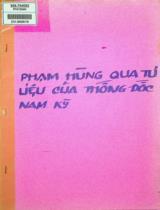 PHẠM HÙNG QUA TƯ
LIỆU CỦA THỐNG ĐỐC
NAM KỲ